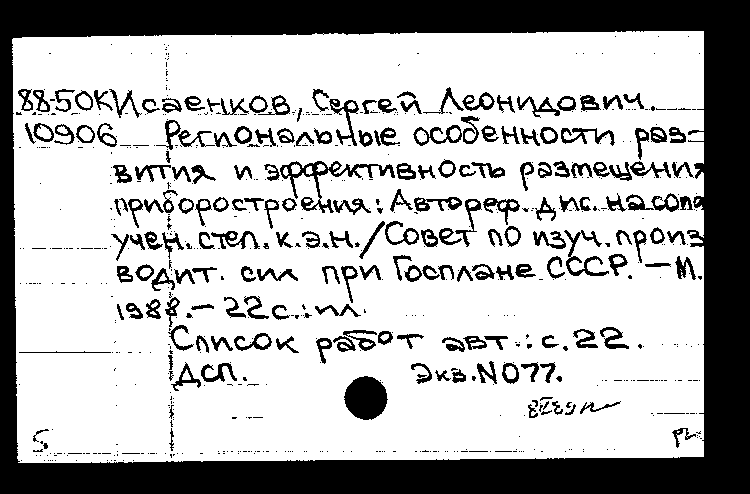 88-50К Исаенков, Сергей Леонидович.
10906 Региональные особенности раз-
вития и эффективность размещения
приборостроения: Автореф. дис. на соиc
учен. степ. к.э.н. / Совет по изуч. произ
водит. сил при Госплане СССР. – М.
1988. – 22 с.: ил.
Список работ авт.: с. 22.
ДСП. Экз. N 077.
5